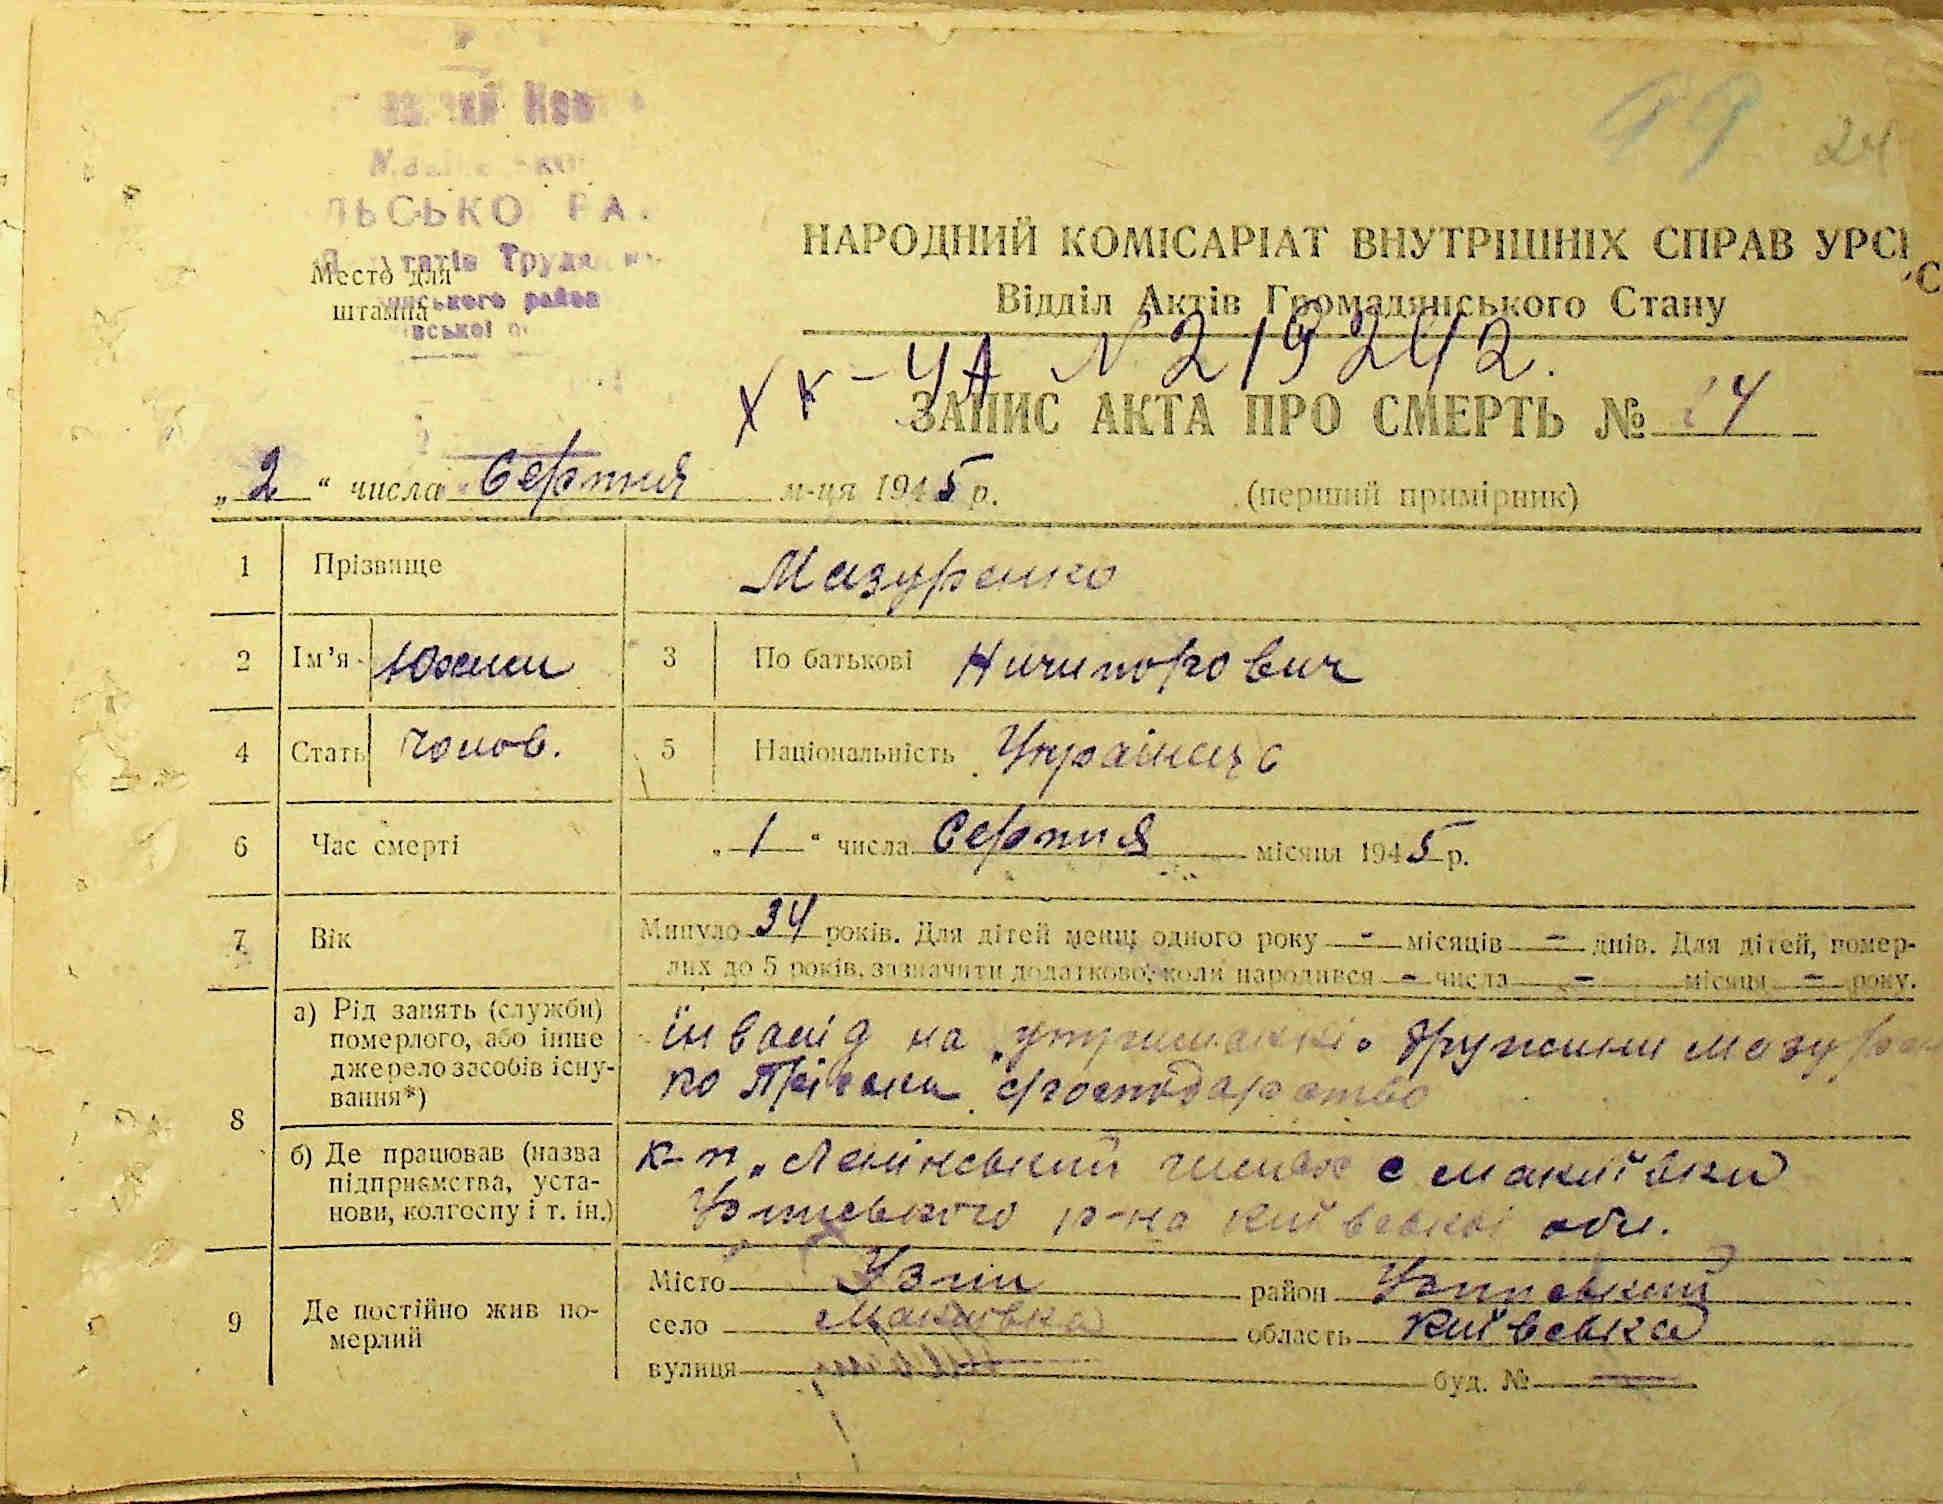 99 24
ЛЬСЬКО РА
татів Труд
ського район
вської о
Место для
штампа
НАРОДНИЙ КОМІСАРІАТ ВНУТРІШНІХ СПРАВ УРСР
Відділ Актів Громадянського Стану
ХК-УА N 219242.
ЗАПИС АКТА ПРО СМЕРТЬ № 14
„2“ числа Серпня м-ця 1945 р. (перший примірник)
1 Прізвище Мазуренко
2 Ім'я Юхим 3 По батькові Ничипорович
4 Стать Чолов. 5 Національність Українець
6 Час смерті „1“ числа Серпня місяця 1945 р.
7 Вік Минуло 34 років. Для дітей менш одного року - місяців - днів. Для дітей, помер-
лих до 5 років, зазначити додатково, коли народився - числа - місяця - року.
8 а) Рід занять (служби) померлого, або інше джерело засобів існу-вання*)
інвалід на утриманні. дружини Мазурен
ко господарство
б) Де працював (назва підприємства, уста-нови, колгоспу і т. ін.)
к-п „Ленінський шлях с Макіївки
Узинського р-на київської обл.
9 Де постійно жив по-мерлий
Місто Узин район Узинський
село Макіївка область Київська
вулиця буд. №